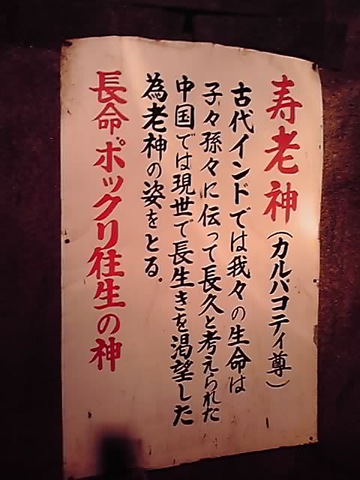 寿老神(カルパコティ尊)
古代インドでは我々の生命は
子々孫々に伝って長久と考えられた
中国では現世で長生きを渇望した
為老神の姿をとる.
長命ポックリ往生の神